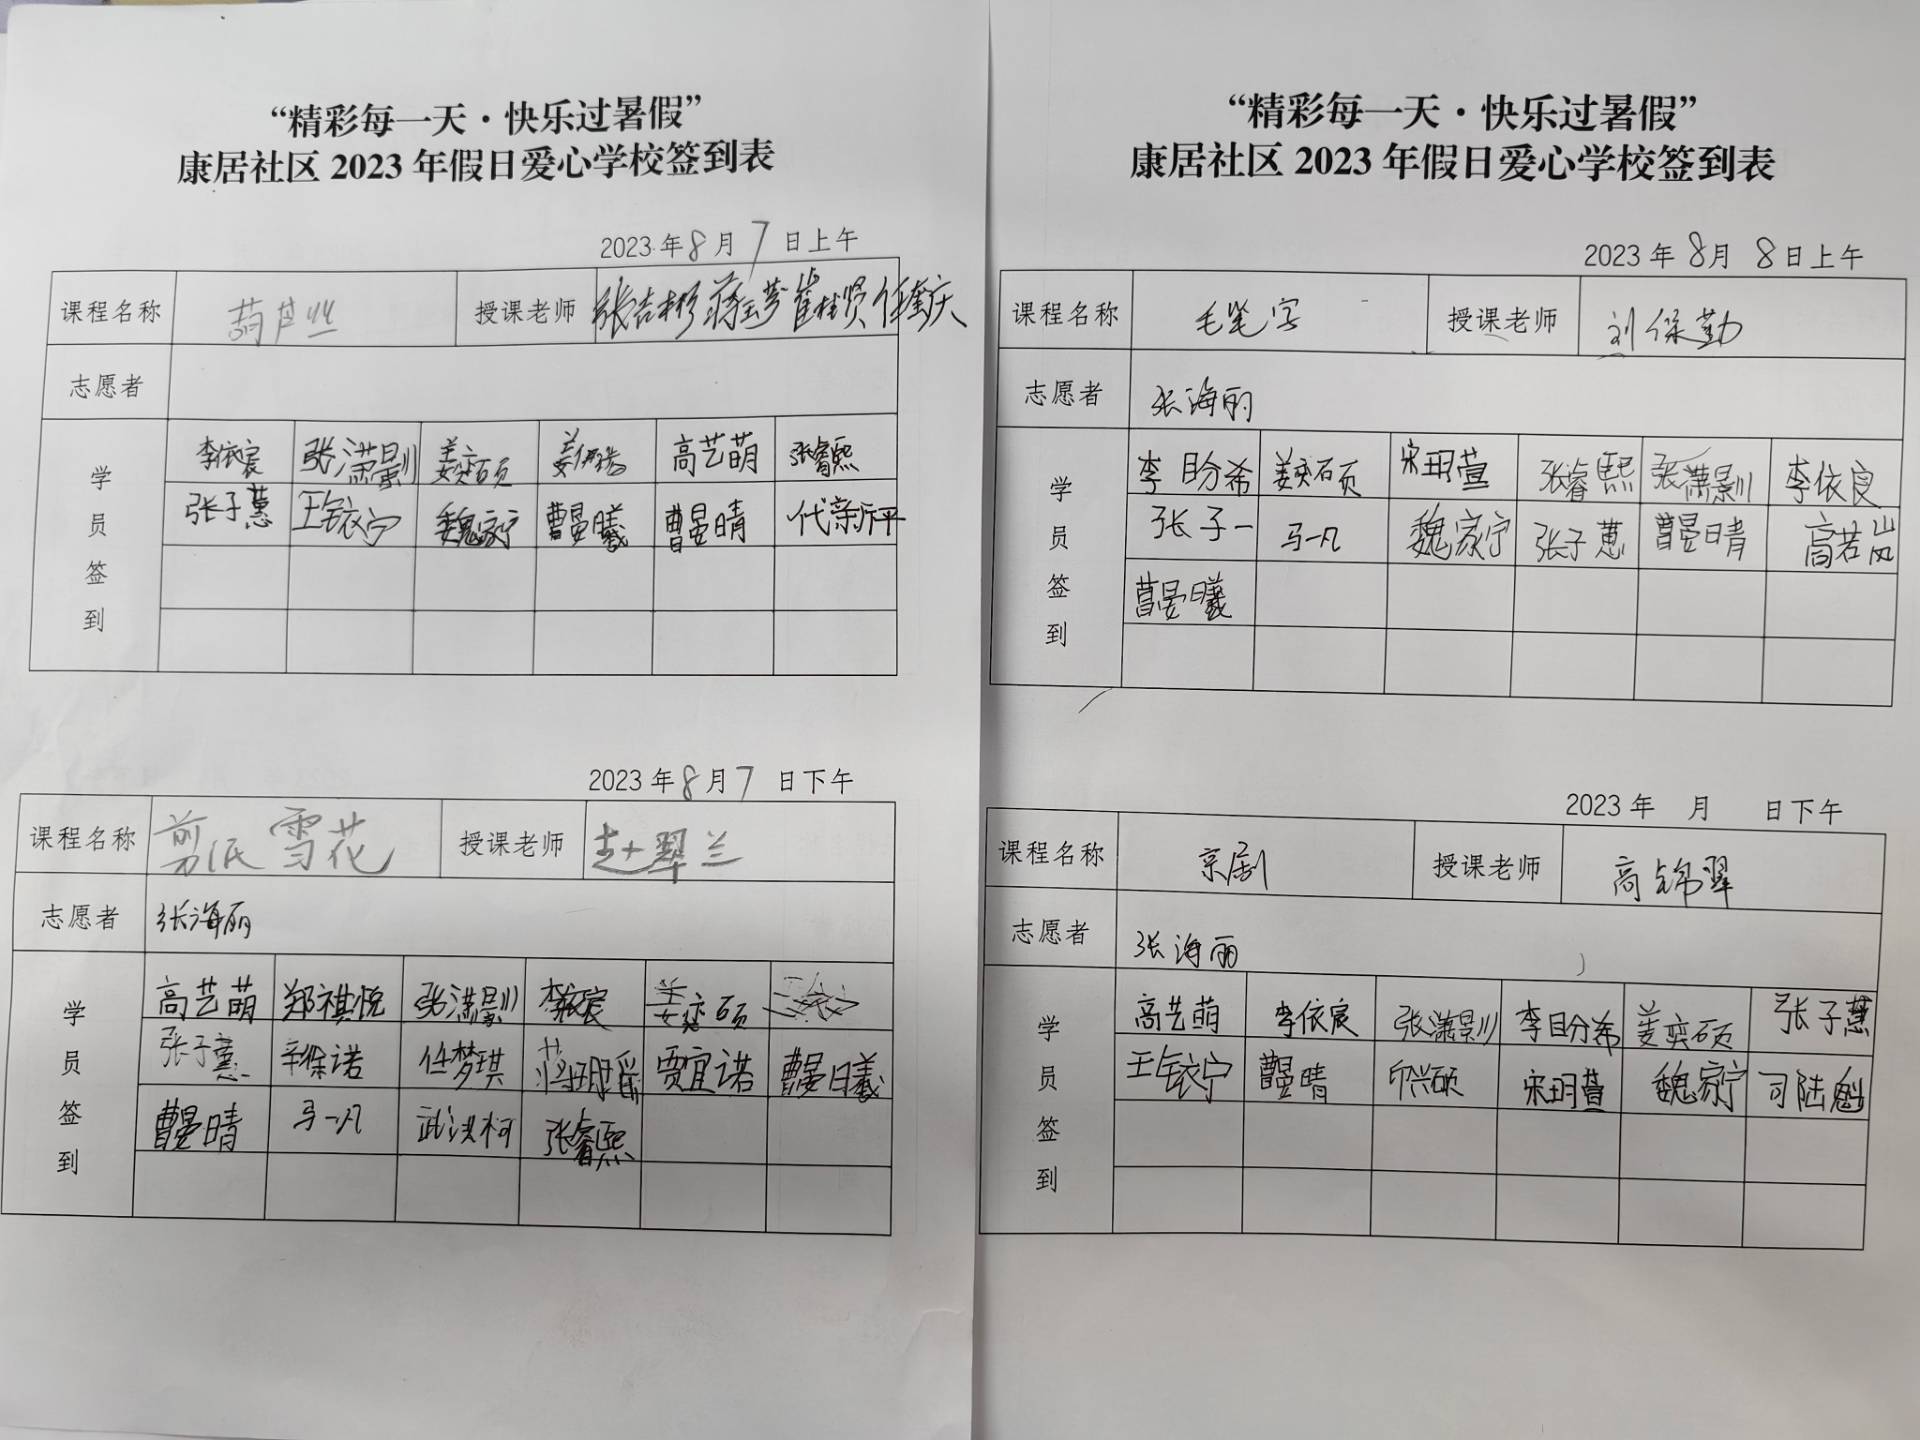 “精彩每一天·快乐过暑假”
康居社区 2023 年假日爱心学校签到表
2023 年 8 月 7 日上午
课程名称 葫芦丝 授课老师 张吉彬 崔桂贤 任奎庆
志愿者
学员签到
李依宸 张潇影 姜奕硕 高艺萌 张睿熙
张子慧 王钰衣宁 魏家宁 曹晏曦 曹晏晴 代新平
2023 年 8 月 7 日下午
课程名称 剪纸 雪花 授课老师 赵翠兰
志愿者 张海丽
学员签到
高艺萌 郑祺悦 李依宸 姜奕硕
张子慧 辛保诺 任梦琪 蒋玥瑶 贾宜诺 曹晏曦
曹晏晴 马一凡 武洪柯 张睿熙
“精彩每一天·快乐过暑假”
康居社区 2023 年假日爱心学校签到表
2023 年 8 月 8 日上午
课程名称 毛笔字 授课老师 刘保勤
志愿者 张海丽
学员签到
李盼希 姜奕硕 宋玥萱 张睿熙 李依宸
张子一 马一凡 魏家宁 张子慧 曹晏晴 高若岚
曹晏曦
2023 年 月 日下午
课程名称 京剧 授课老师 高锦翠
志愿者 张海丽
学员签到
高艺萌 李依宸 李盼希 姜奕硕 张子慧
王钰衣宁 曹晏晴 印兴硕 宋玥萱 魏家宁 司陆魁